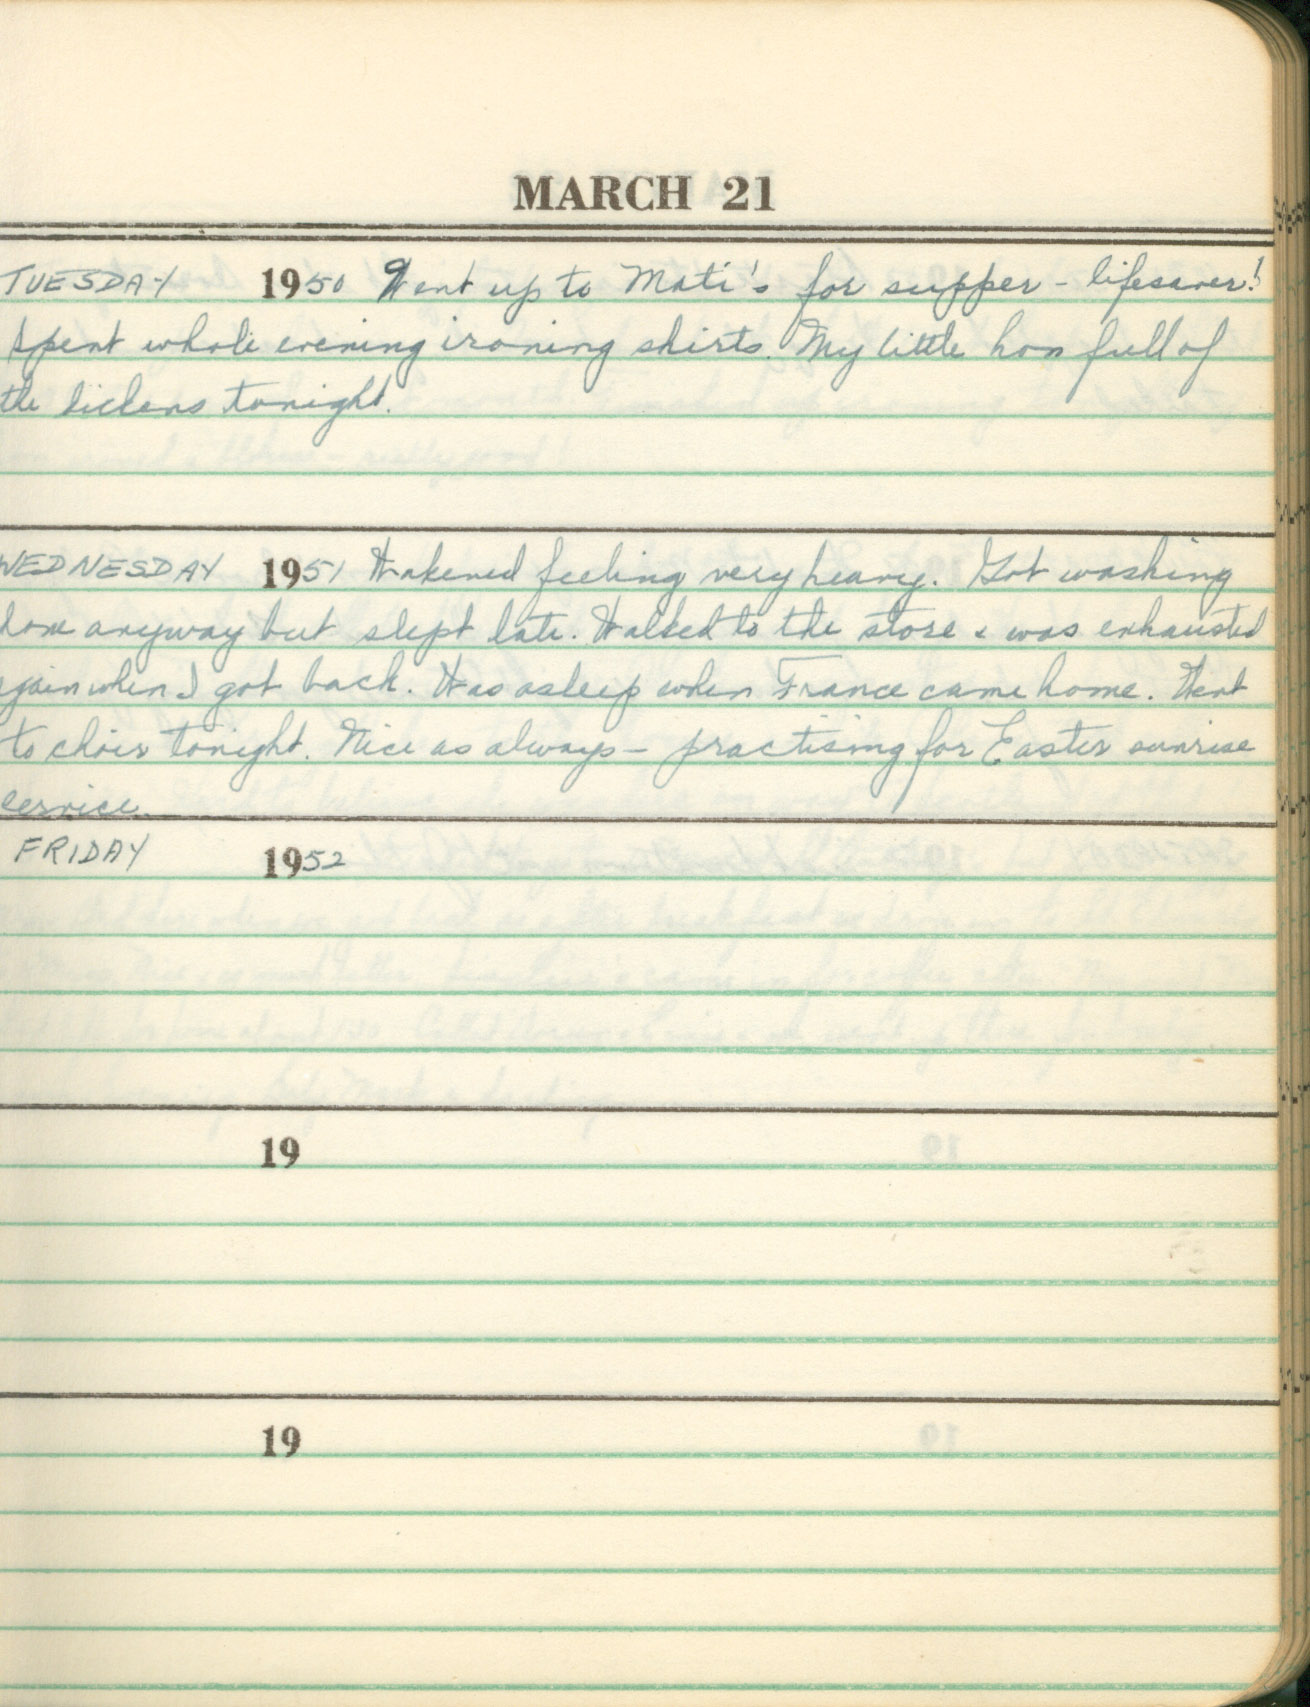 MARCH 21
TUESDAY 1950 Went up to Mati's for supper - lifesaver!
Spent whole evening ironing shirts. My little hon full of
the dickens tonight.
WEDNESDAY 1951 Wakened feeling very heavy. Got washing
done anyway but slept late. Walked to the store & was exhausted
again when I got back. Was asleep when France came home. Went
to choir tonight. Nice as always - practising for Easter sunrise
service.
FRIDAY 1952
19
19